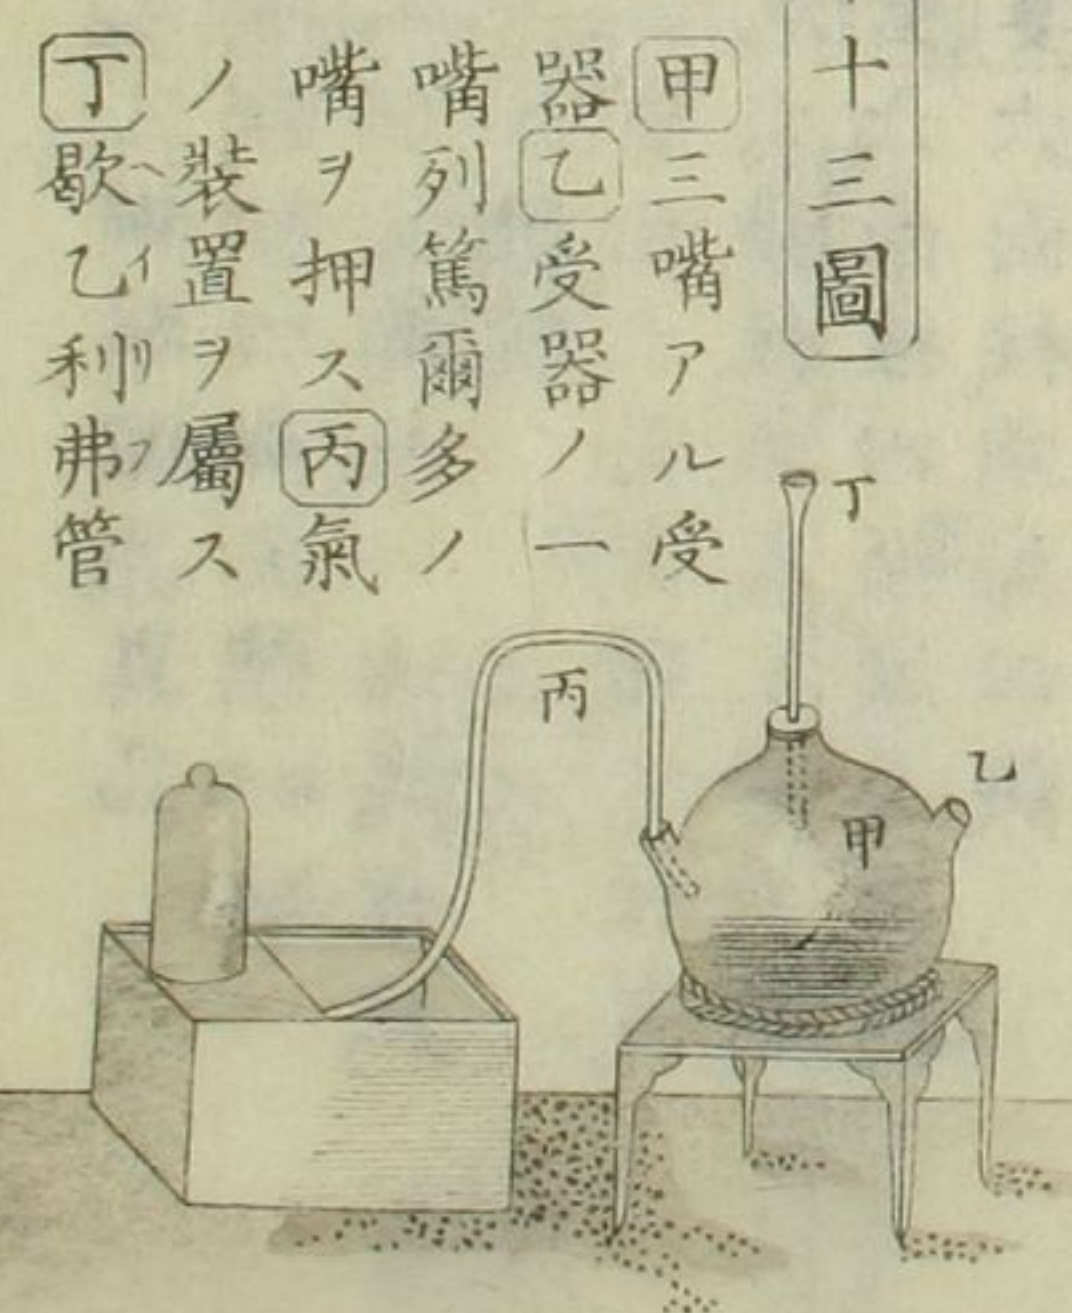 十三圖
甲三嘴アル受
器乙受器ノ一
嘴列篤爾多ノ
嘴ヲ押ス丙氣
ノ裝置ヲ屬ス
丁歇乙利弗管
ヘイリフ
丁
丙
乙
甲